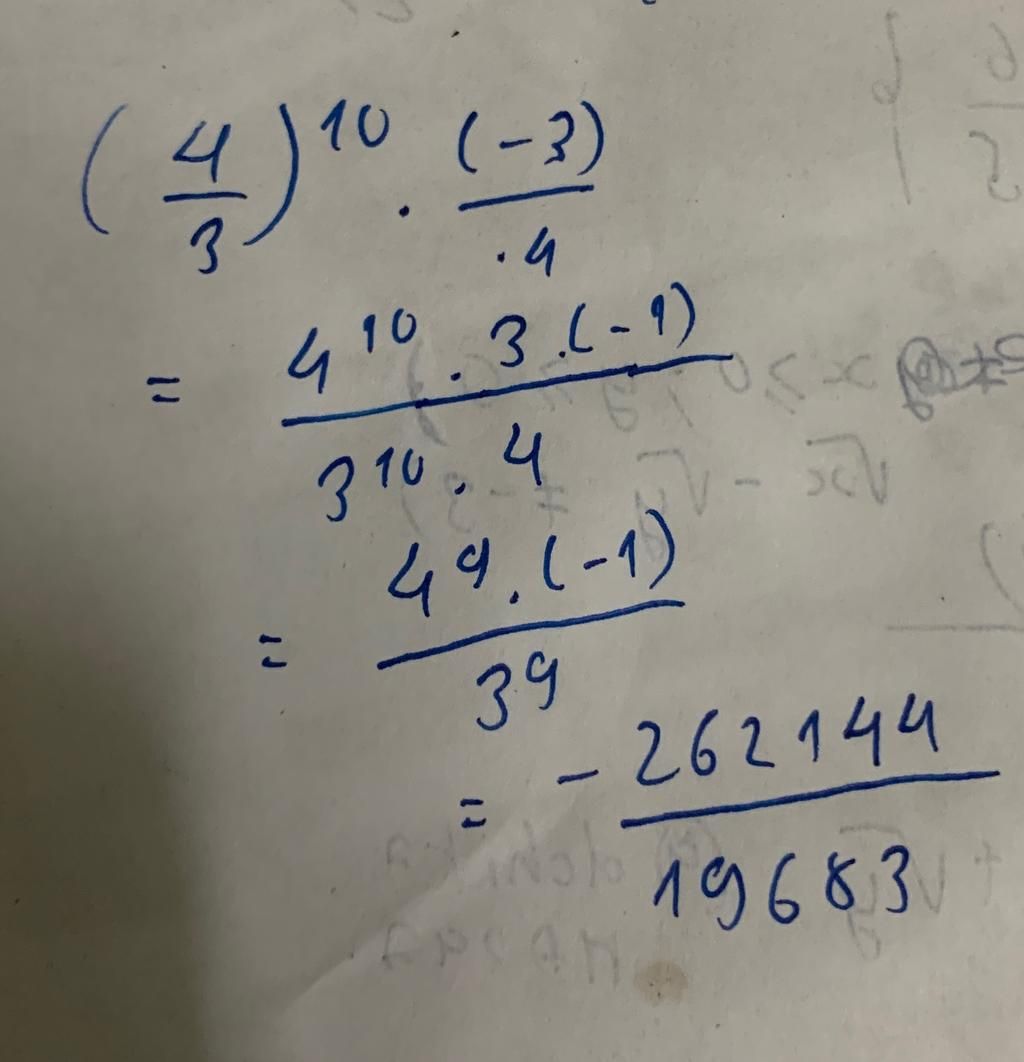 (4/3)^10 . (-3)/.4
= 4^10 . 3 . (-1) / 3^10 . 4
= 4^9 . (-1) / 3^9
= - 262144 / 19683